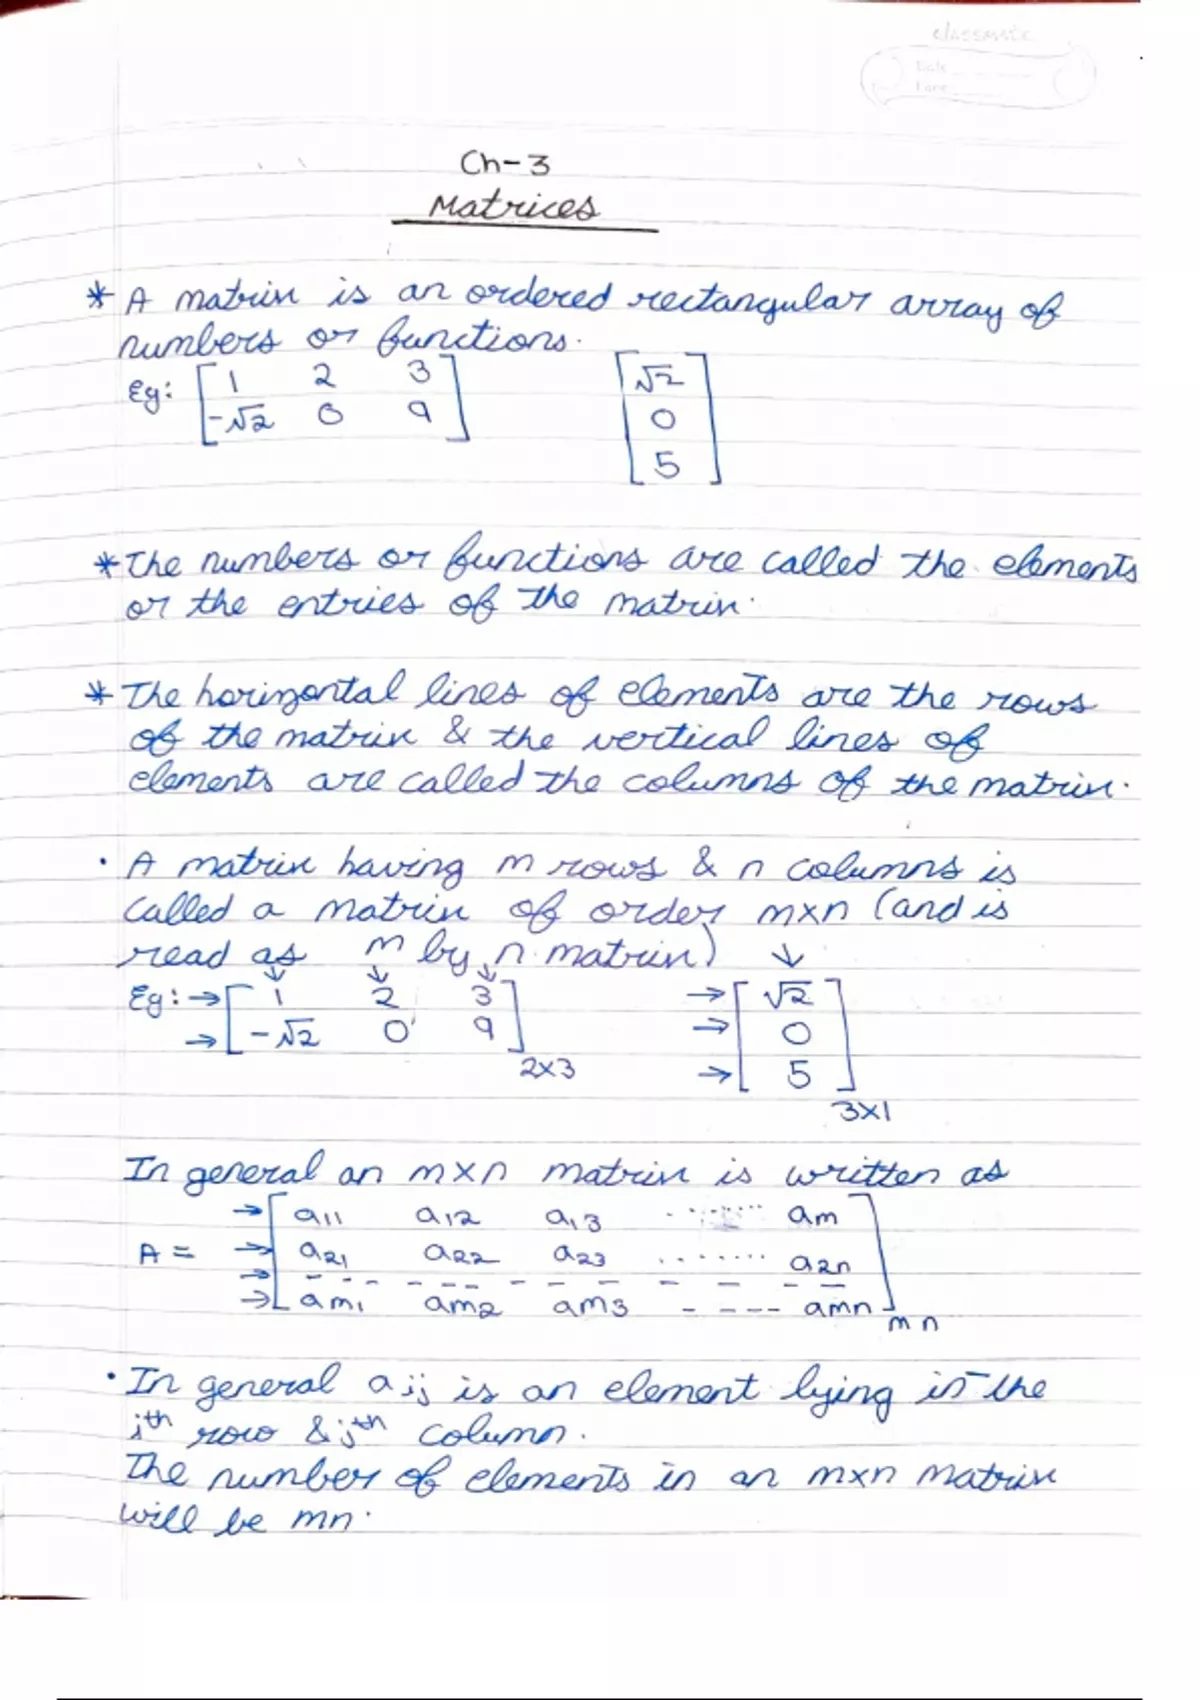 classmate
Date
Page
Ch-3
Matrices
* A matrix is an ordered rectangular array of
numbers or functions.
Eg: [1 2 3] [√2]
[-√2 0 9] [0]
[5]
* The numbers or functions are called the elements
or the entries of the matrix.
* The horizontal lines of elements are the rows
of the matrix & the vertical lines of
elements are called the columns of the matrix.
• A matrix having m rows & n columns is
called a matrix of order m×n (and is
read as m by n matrix) ↓
↓ ↓ ↓
Eg: → [1 2 3] → [√2]
→ [-√2 0 9] → [0]
2×3 → [5]
3×1
In general an m×n matrix is written as
→ [a11 a12 a13 ........ am]
A = → [a21 a22 a23 ........ a2n]
→ - - - - - - - - - - - - -
→ [am1 am2 am3 - - - - - amn]
mn
• In general aij is an element lying in the
ith row & jth column.
The number of elements in an m×n matrix
will be mn.